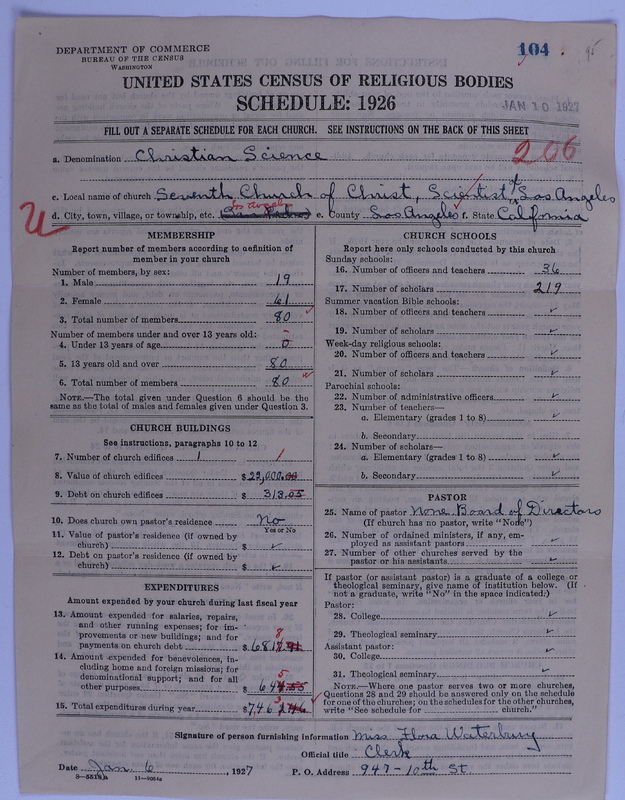 DEPARTMENT OF COMMERCE
BUREAU OF THE CENSUS
WASHINGTON
104
95
UNITED STATES CENSUS OF RELIGIOUS BODIES
SCHEDULE: 1926
JAN 10 1927
FILL OUT A SEPARATE SCHEDULE FOR EACH CHURCH. SEE INSTRUCTIONS ON THE BACK OF THIS SHEET
a. Denomination Christian Science 206
c. Local name of church Seventh Church of Christ, Scientist, Los Angeles
Los Angeles
d. City, town, village, or township, etc. San Pedro e. County Los Angeles f. State California
MEMBERSHIP
Report number of members according to definition of
member in your church
Number of members, by sex:
1. Male 19
2. Female 61
3. Total number of members 80
Number of members under and over 13 years old:
4. Under 13 years of age 0
5. 13 years old and over 80
6. Total number of members 80
NOTE.—The total given under Question 6 should be the
same as the total of males and females given under Question 3.
CHURCH BUILDINGS
See instructions, paragraphs 10 to 12
7. Number of church edifices 1 1
8. Value of church edifices $ 22,000.00
9. Debt on church edifices $ 313.05
10. Does church own pastor's residence No
Yes or No
11. Value of pastor's residence (if owned by
church) $
12. Debt on pastor's residence (if owned by
church) $
EXPENDITURES
Amount expended by your church during last fiscal year
13. Amount expended for salaries, repairs,
and other running expenses; for im-
provements or new buildings; and for
payments on church debt $ 6817
8
14. Amount expended for benevolences, in-
cluding home and foreign missions; for
denominational support; and for all
other purposes $ 644
5
15. Total expenditures during year $ 7462
3
CHURCH SCHOOLS
Report here only schools conducted by this church
Sunday schools:
16. Number of officers and teachers 36
17. Number of scholars 219
Summer vacation Bible schools:
18. Number of officers and teachers
19. Number of scholars
Week-day religious schools:
20. Number of officers and teachers
21. Number of scholars
Parochial schools:
22. Number of administrative officers
23. Number of teachers—
a. Elementary (grades 1 to 8)
b. Secondary
24. Number of scholars—
a. Elementary (grades 1 to 8)
b. Secondary
PASTOR
25. Name of pastor None. Board of Directors
(If church has no pastor, write "None")
26. Number of ordained ministers, if any, em-
ployed as assistant pastors
27. Number of other churches served by the
pastor or his assistants
If pastor (or assistant pastor) is a graduate of a college or
theological seminary, give name of institution below. (If
not a graduate, write "No" in the space indicated.)
Pastor:
28. College
29. Theological seminary
Assistant pastor:
30. College
31. Theological seminary
NOTE.—Where one pastor serves two or more churches,
Questions 28 and 29 should be answered only on the schedule
for one of the churches; on the schedules for the other churches,
write "See schedule for church."
Signature of person furnishing information Miss Flora Waterbury
Official title Clerk
Date Jan. 6, 1927 P. O. Address 947 - 10th St
8—5518a 11—9054a